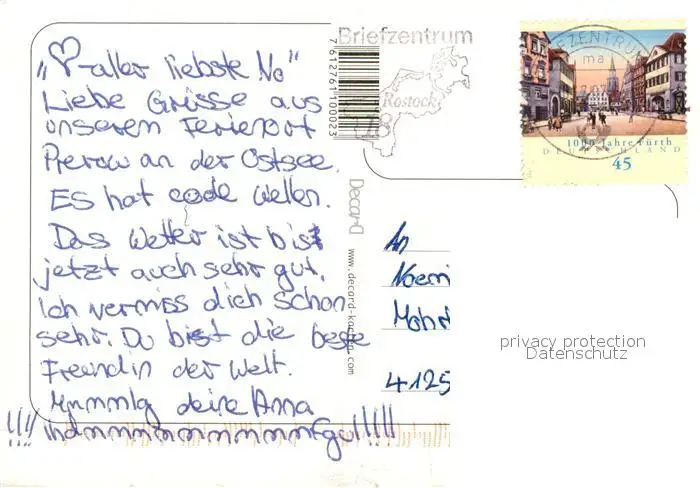 „♡-aller liebste No"
Liebe Grüsse aus
unserem Ferienort
Prerow an der Ostsee.
Es hat coole Wellen.
Das Wetter ist bis
jetzt auch sehr gut.
Ich vermiss dich schon
sehr. Du bist die beste
Freundin der Welt.
deine Anna
7612761100023
Decard
www.decard-karten.
Briefzentrum
Rostock
18
BRIEFZENTRUM
ma
1000 Jahre Fürth
DEUTSCHLAND
45
An
Noemi
4125
privacy protection
Datenschutz